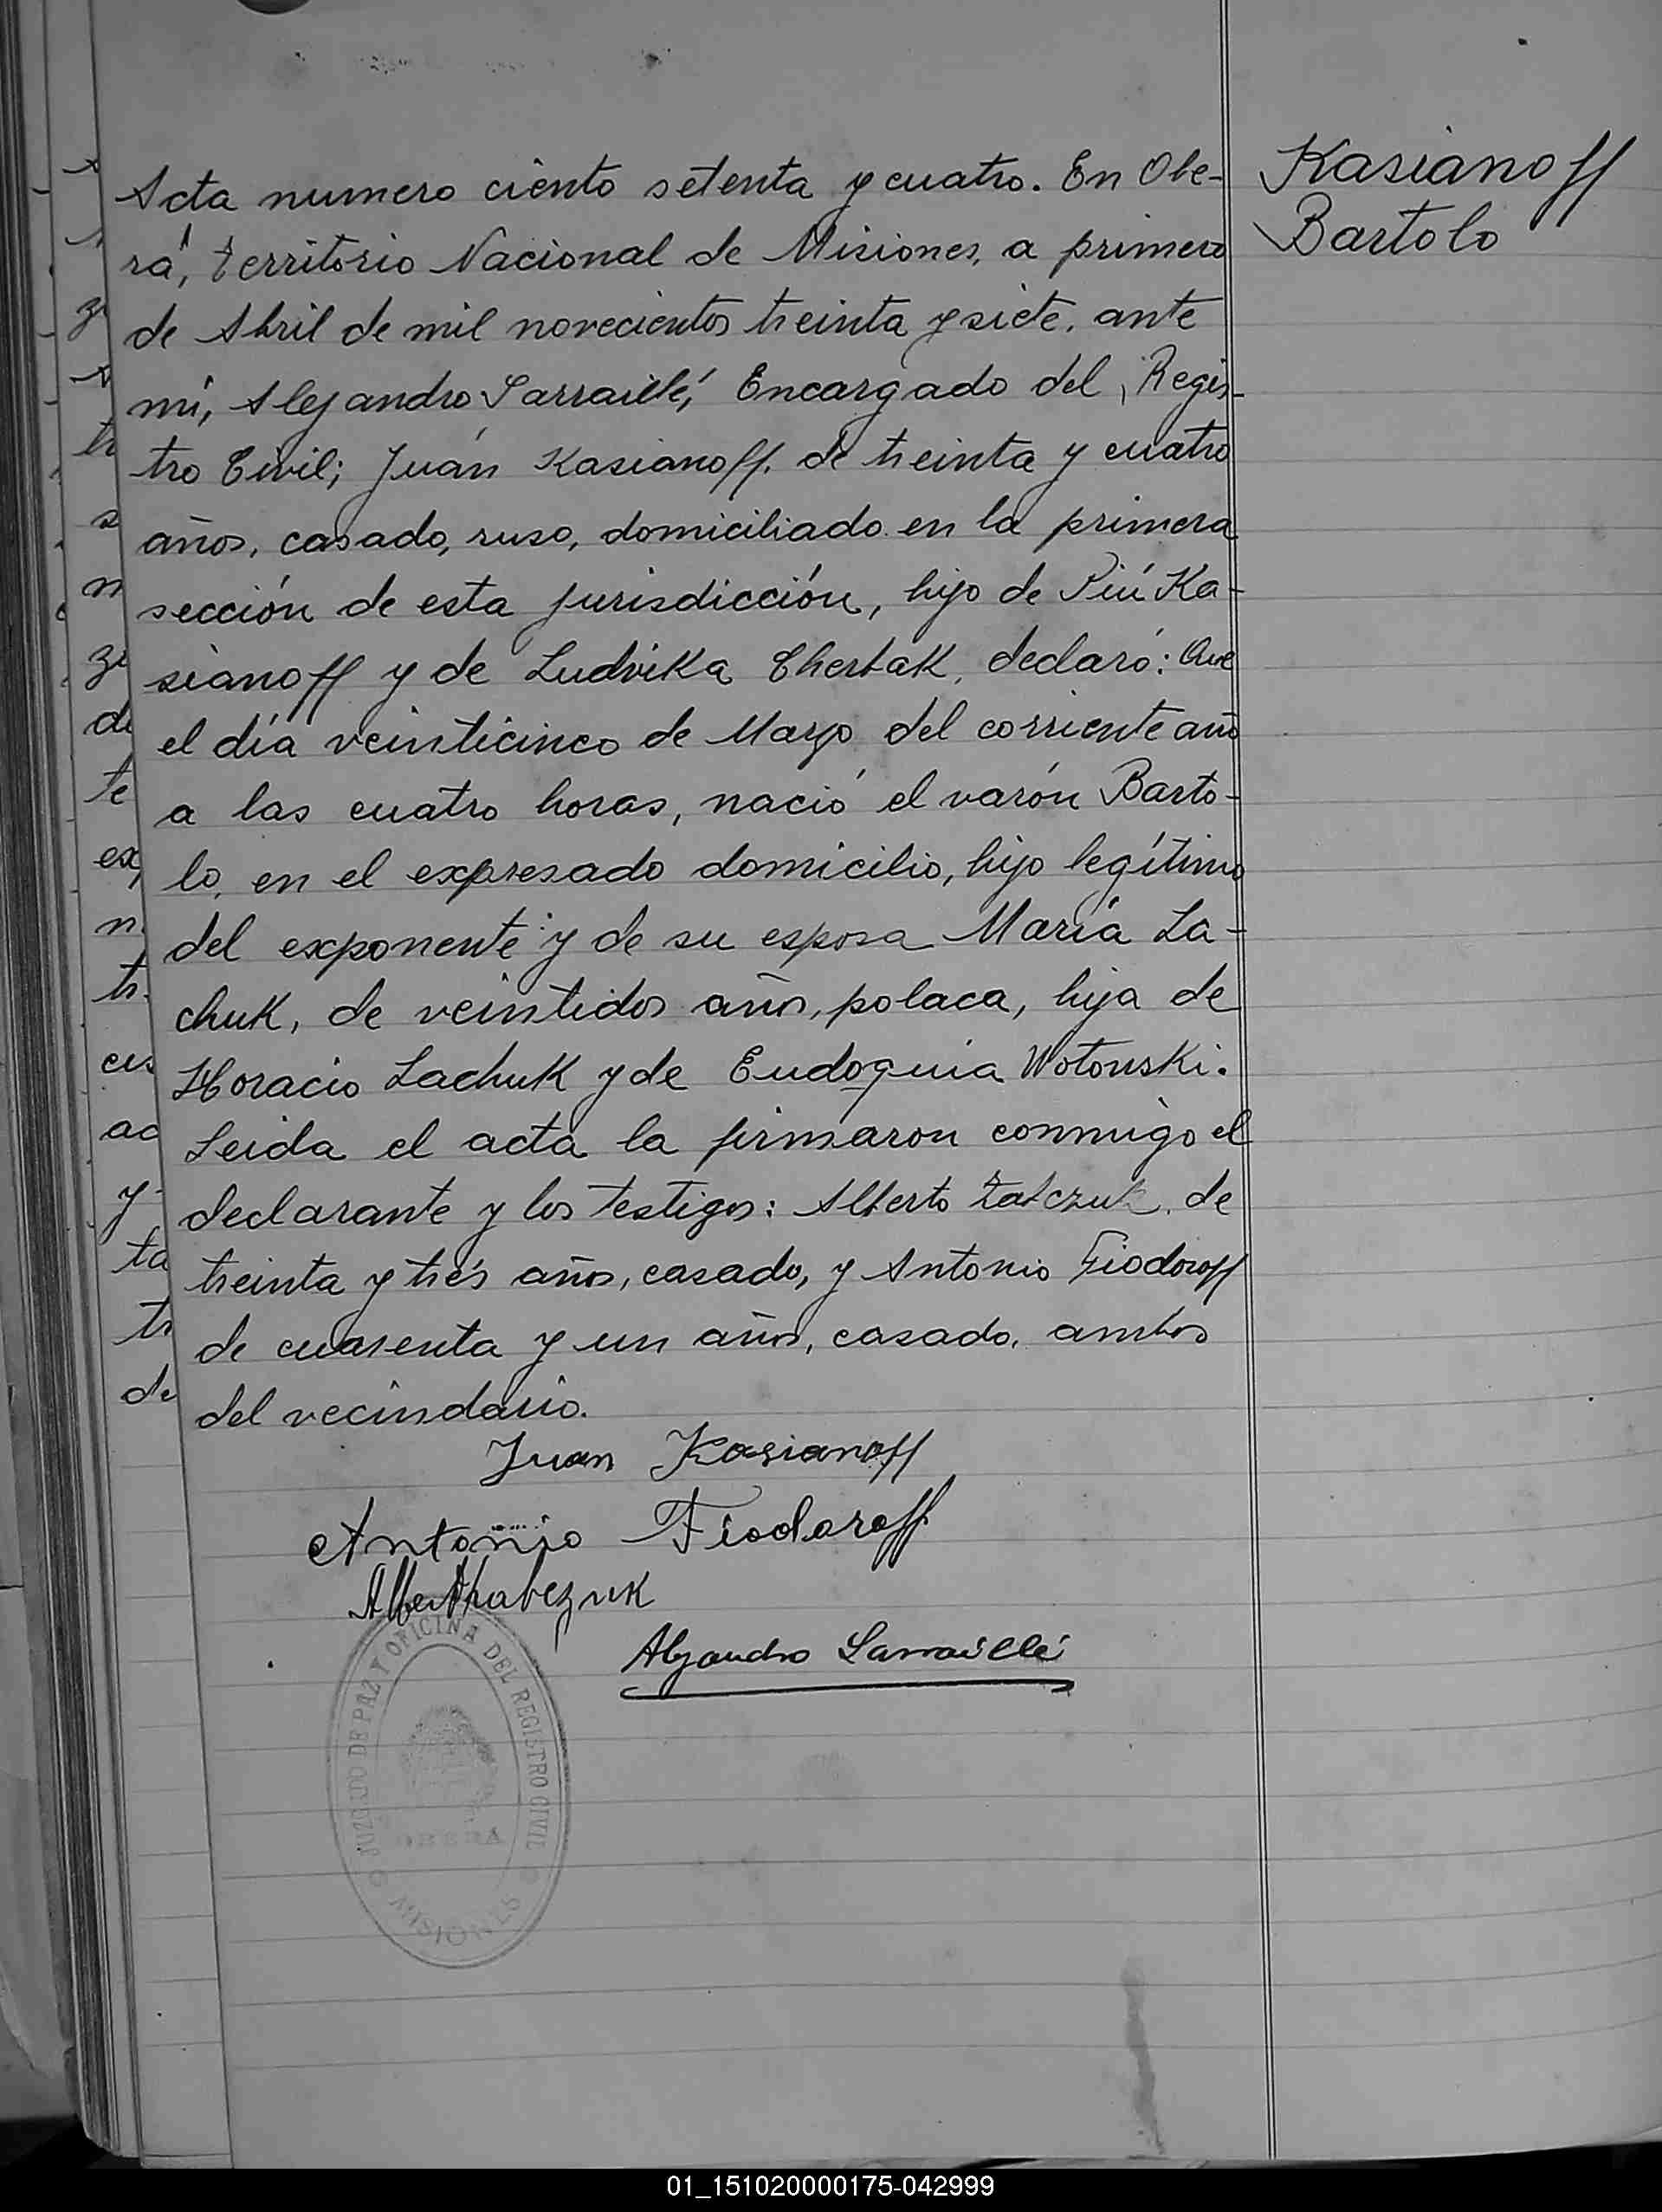 Kasianoff
Bartolo
Acta numero ciento setenta y cuatro. En Obe-
rá, territorio Nacional de Misiones, a primero
de Abril de mil novecientos treinta y siete, ante
mi, Alejandro Sarraillé, Encargado del Regis-
tro Civil; Juán Kasianoff, de treinta y cuatro
años, casado, ruso, domiciliado en la primera
sección de esta jurisdicción, hijo de Piú Ka-
sianoff y de Ludvika Chertak, declaró: Que
el día veinticinco de Marzo del corriente año
a las cuatro horas, nació el varón Barto-
lo, en el expresado domicilio, hijo legítimo
del exponente y de su esposa María La-
chuk, de veintidos años, polaca, hija de
Horacio Lachuk y de Eudoquia Wotouski.
Leida el acta la firmaron conmigo el
declarante y los testigos: Alberto de
treinta y trés años, casado, y Antonio Fiodoroff
de cuarenta y un años, casado, ambos
del vecindario.
Juan Kasianoff
Antonio Fiodoroff
Alejandro Sarraillé
JUZGADO DE PAZ Y OFICINA DEL REGISTRO CIVIL
OBERA
MISIONES
01_151020000175-042999